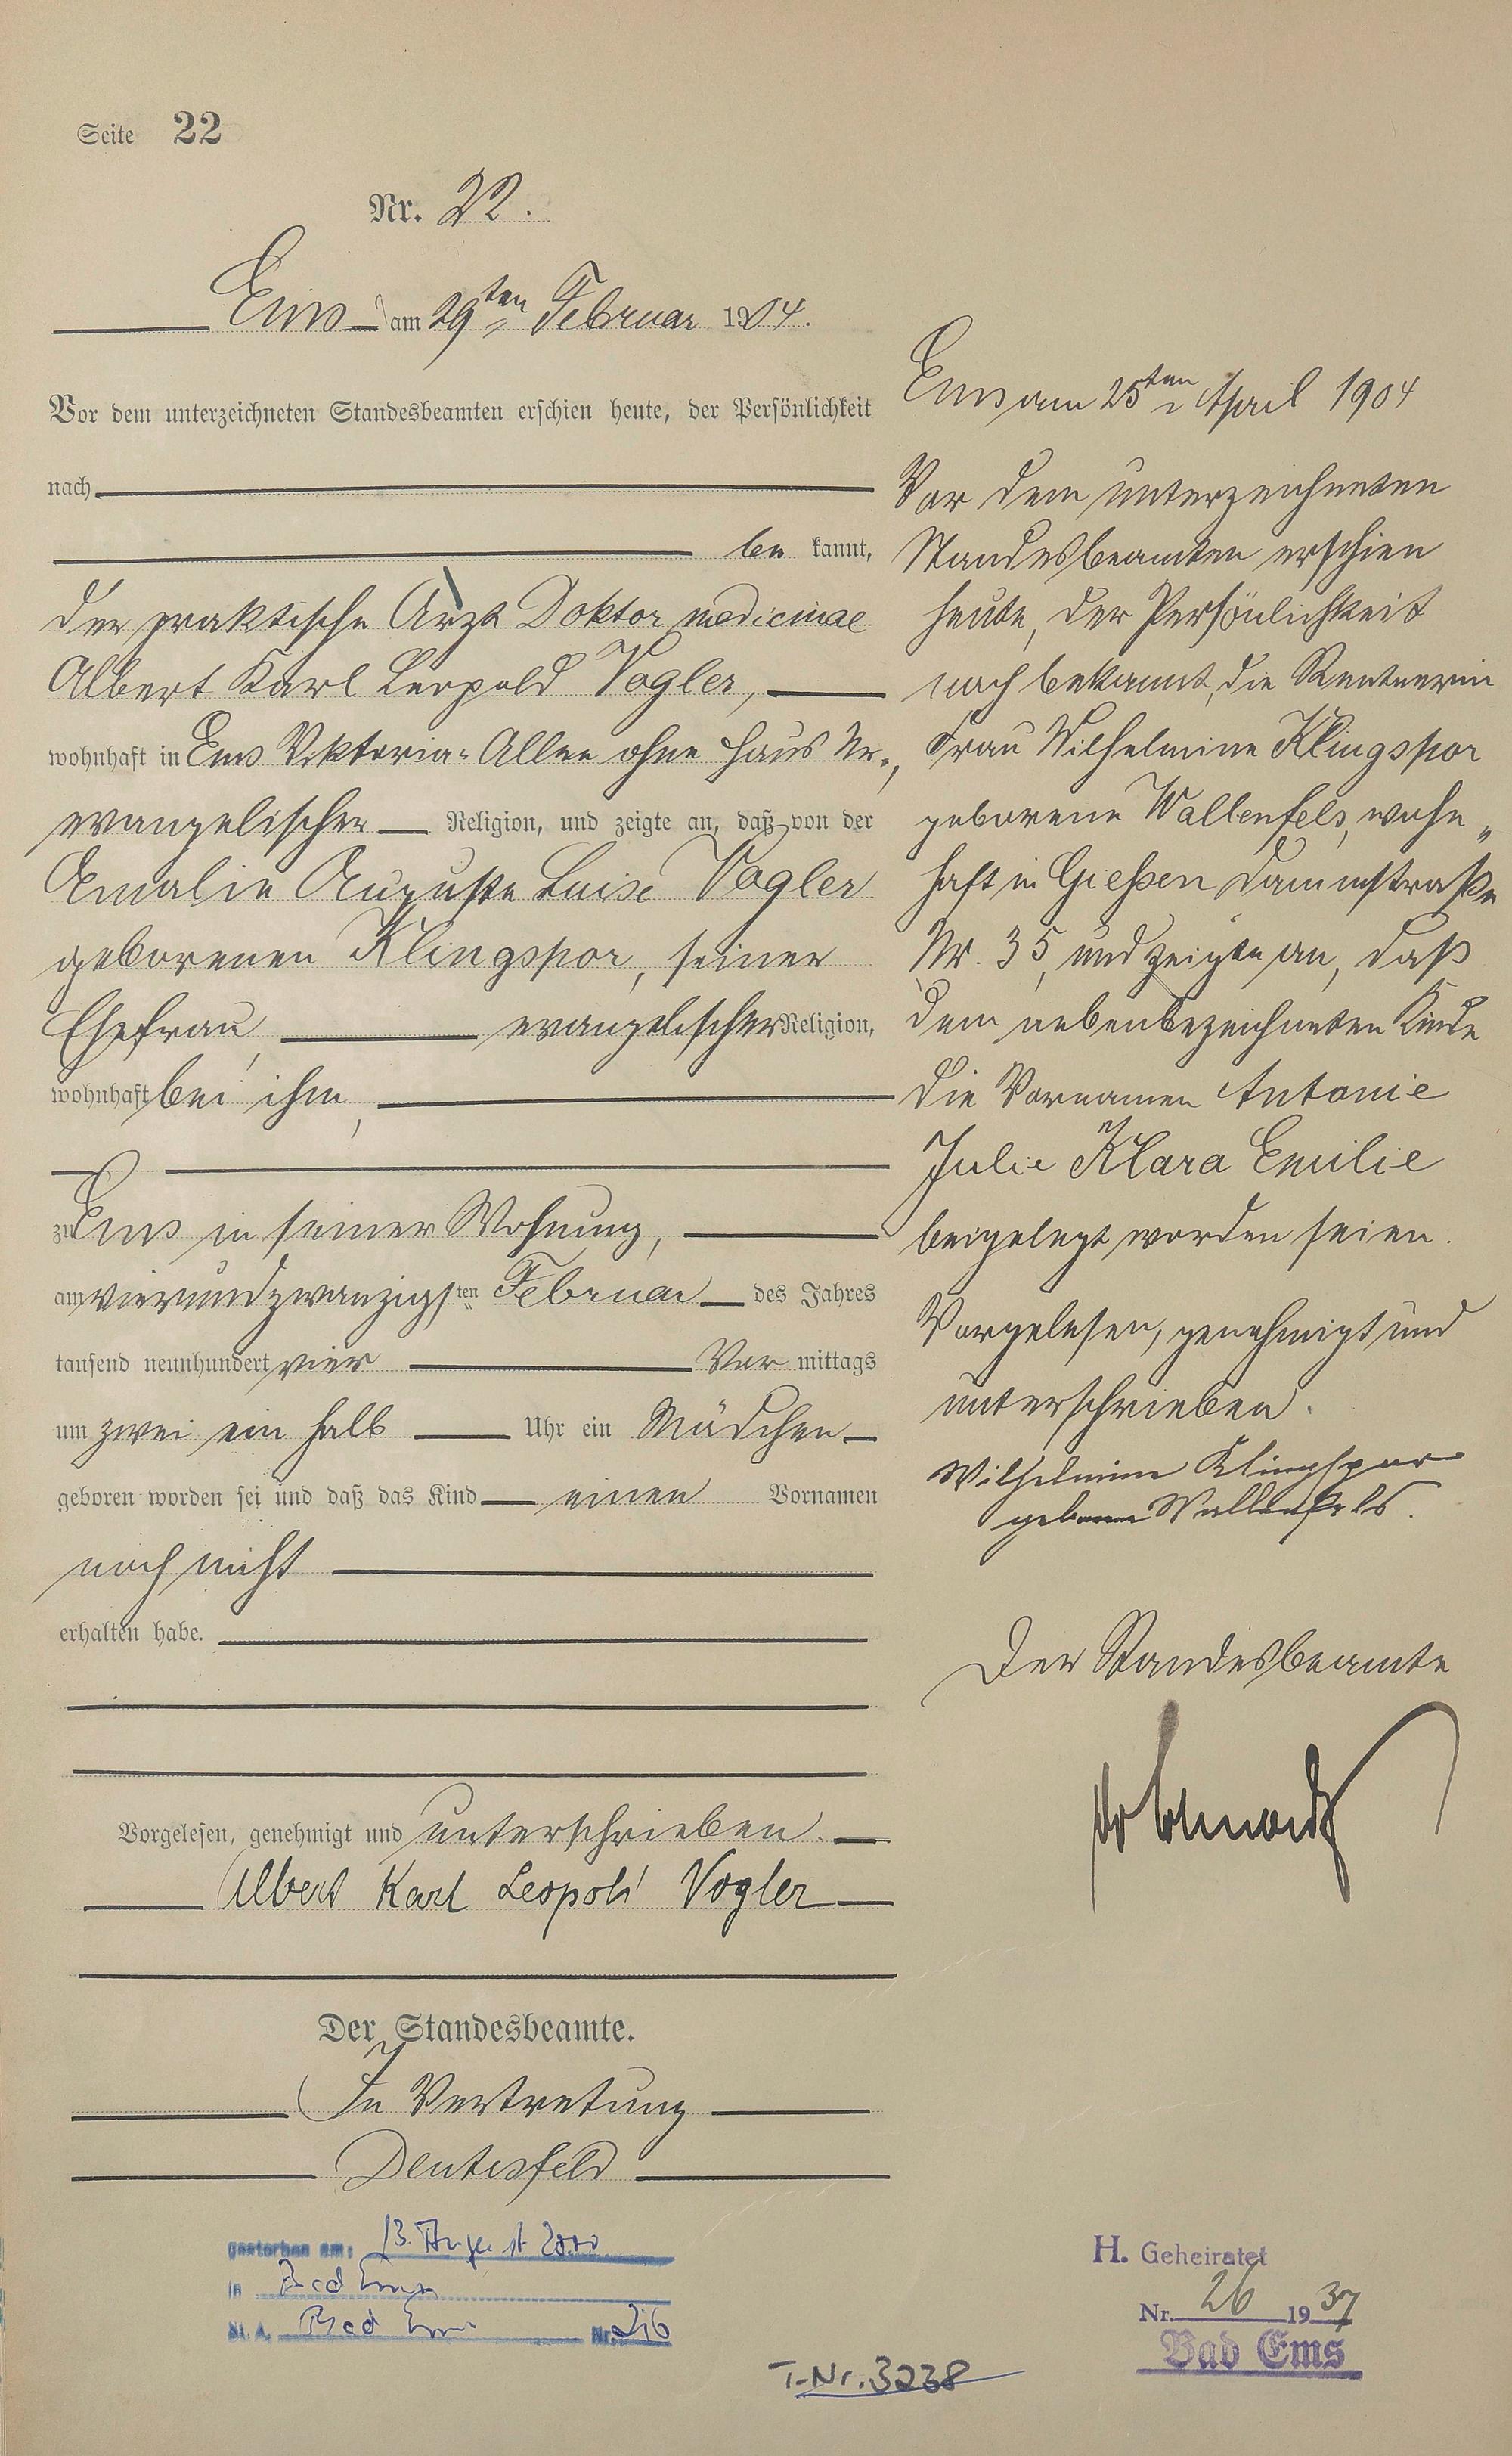 Seite 22
Nr. 22.
Ems am 29ten Februar 1904.
Vor dem unterzeichneten Standesbeamten erschien heute, der Persönlichkeit
nach
be kannt,
der praktische Arzt Doktor medicinae
Albert Karl Leopold Vogler,
wohnhaft in Ems Viktoria-Allee ohne Haus Nr.,
evangelischer Religion, und zeigte an, daß von der
Amalie Auguste Luise Vogler
geborenen Klingspor, seiner
Ehefrau, evangelischer Religion,
wohnhaft bei ihm,
zu Ems in seiner Wohnung,
am vierundzwanzigsten Februar des Jahres
tausend neunhundert vier Vor mittags
um zwei ein halb Uhr ein Mädchen
geboren worden sei und daß das Kind einen Vornamen
noch nicht
erhalten habe.
Vorgelesen, genehmigt und unterschrieben.
Albert Karl Leopold Vogler
Der Standesbeamte.
In Vertretung
Deutesfeld
gestorben am: 13. August 2000
in Bad Ems
St. A. Bad Ems Nr. 216
Ems am 25ten April 1904
Vor dem unterzeichneten
Standesbeamten erschien
heute, der Persönlichkeit
nach bekannt, die Rentnerin
Frau Wilhelmine Klingspor
geborene Wallenfels, wohn-
haft in Gießen Dammstraße
Nr. 35, und zeigte an, daß
dem nebenbezeichneten Kinde
die Vornamen Antonie
Julie Klara Emilie
beigelegt worden seien.
Vorgelesen, genehmigt und
unterschrieben.
Wilhelmine Klingspor
geborene Wallenfels.
Der Standesbeamte
H. Geheiratet
Nr. 26 1937
Bad Ems
T.-Nr. 3238